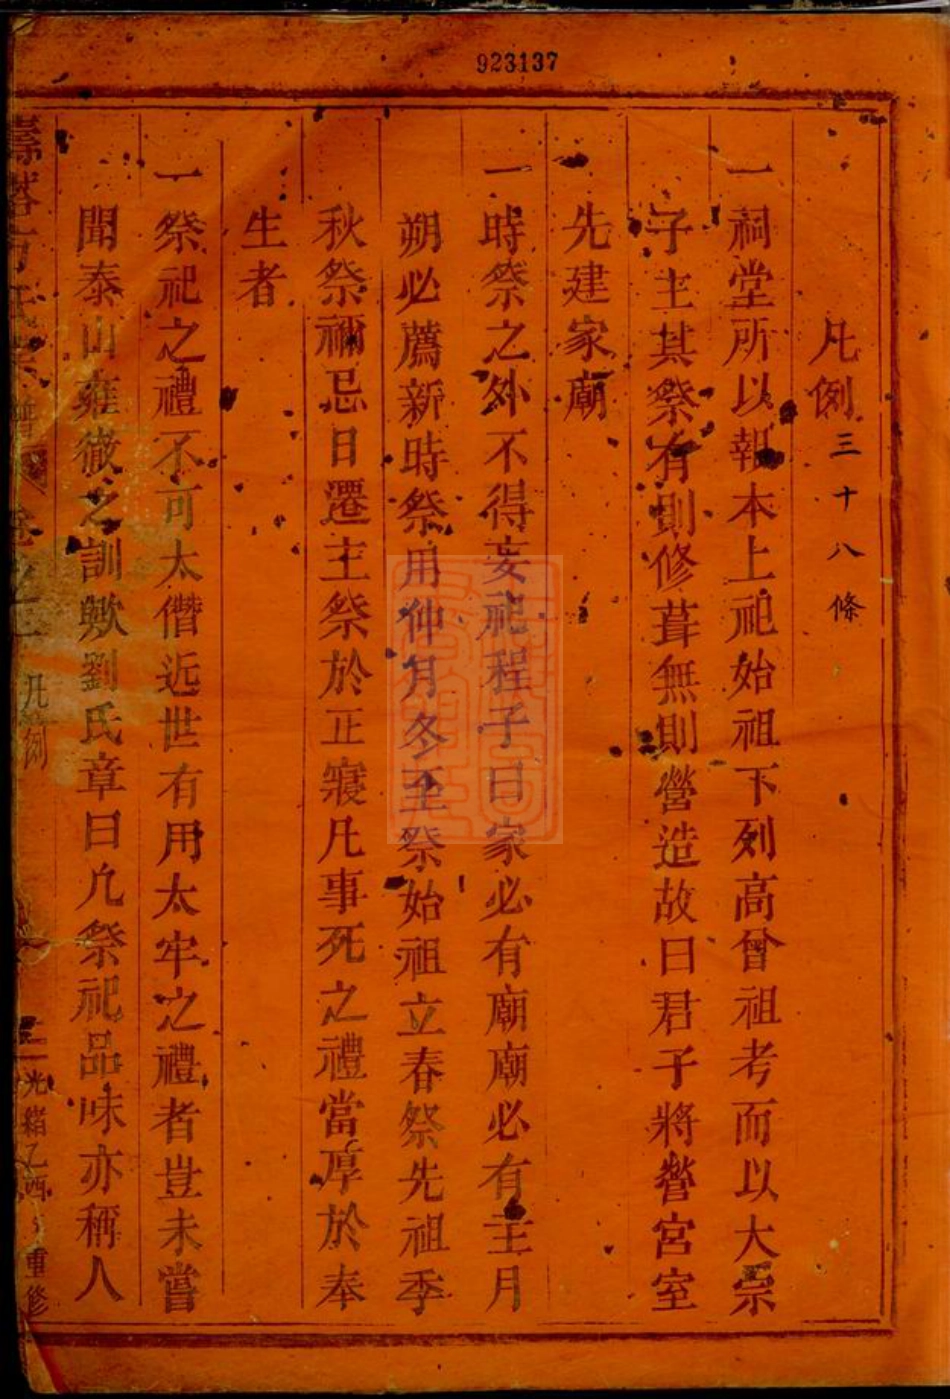 923137
凡例三十八條
一祠堂所以報本上祀始祖下列高曾祖考而以大宗
子主其祭有則修葺無則營造故曰君子將營宮室
先建家廟
一時祭之外不得妄祀程子曰家必有廟廟必有主月
朔必薦新時祭用仲月冬至祭始祖立春祭先祖季
秋祭禰忌日遷主祭於正寢凡事死之禮當厚於奉
生者
一祭祀之禮不可太僭近世有用太牢之禮者豈未嘗
聞泰山雍徹之訓歟劉氏章曰凢祭祀品味亦稱人
氏宗譜 卷之 凡例 光緒乙酉 重修